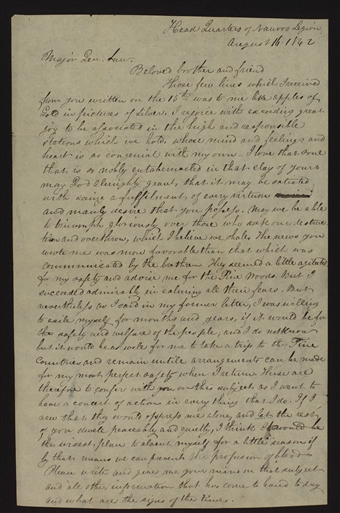 Head Quarters of Nauvoo Legion
August 16 1842
Major Gen. Law.
Beloved brother and friend
Those few lines which I received
from you written on the 15th was to me like apples of
Gold in pictures of silver. I rejoice with exceeding great
joy to be associated in the high and responsible
stations which we hold, whose mind and feelings and
heart is so congenial with my own. I love that soul
that is so nobly entabernacled in that clay of yours
may God Almighty grant, that it may be satiated
with seeing a fulfilment of every virtuous
and manly desire that you possess. May we be able
to triumph gloriously over those who seek our destruc
tion and overthrow, which I believe we shall. The news you
wrote me was more favorable than that which was
communicated by the brethren. They seemed a little agitated
for my safety and advise me for the Pine Woods. But I
succeeded admirably in calming all their fears. But
nevertheless as I said in my former letter, I was willing
to exile myself for months and years, if it would be for
the safety and welfare of the people, and I do not know
but it would be as well for me to take a trip to the Pine
Countries and remain untill arrangements can be made
for my most perfect safety when I return. These are
therefore to confer with you on this subject as I want to
have a concert of action in every thing that I do. If I
new that they would oppress me alone, and let the rest
of you dwell peaceably and quietly, I think it would be
the wisest plan to absent myself for a little season if
by that means we can prevent the profusion of blood.
Please write and give me your mind on that subject
and all other information that has come to hand to day
and what are the signs of the times.